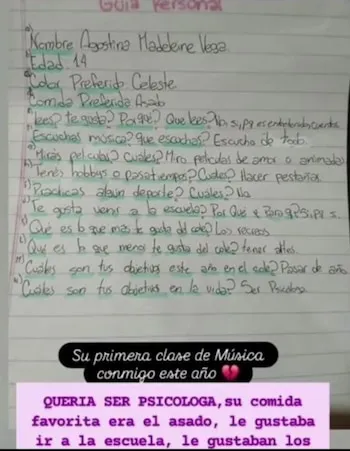 Guía Personal
a) Nombre Agostina Madeleine Vega.
b) Edad 14
c) Color Preferido Celeste
Comida Preferida Asado
lees? te gusta? Por qué? Que lees? No, si, pq es entretenido cuentos
Escuchas música? que escuchas? Escucho de todo.
Mirás peliculas? Cuales? Miro peliculas de amor o animadas
Tenés hobbys o pasatiempos? Cuales? Hacer pestañas.
Practicas algun deporte? Cuales? No
Te gusta venir a la escuela? Por Qué o Para q? Si, ps s.
Qué es lo que más te gusta del cole? Los recreos
Qué es lo que menos te gusta del cole? tener
Cuáles son tus objetivos este año en el cole? Pasar de año
Cuáles son tus objetivos en la vida? Ser Psicologa
Su primera clase de Música
conmigo este año 💔
QUERIA SER PSICOLOGA,su comida
favorita era el asado, le gustaba
ir a la escuela, le gustaban los